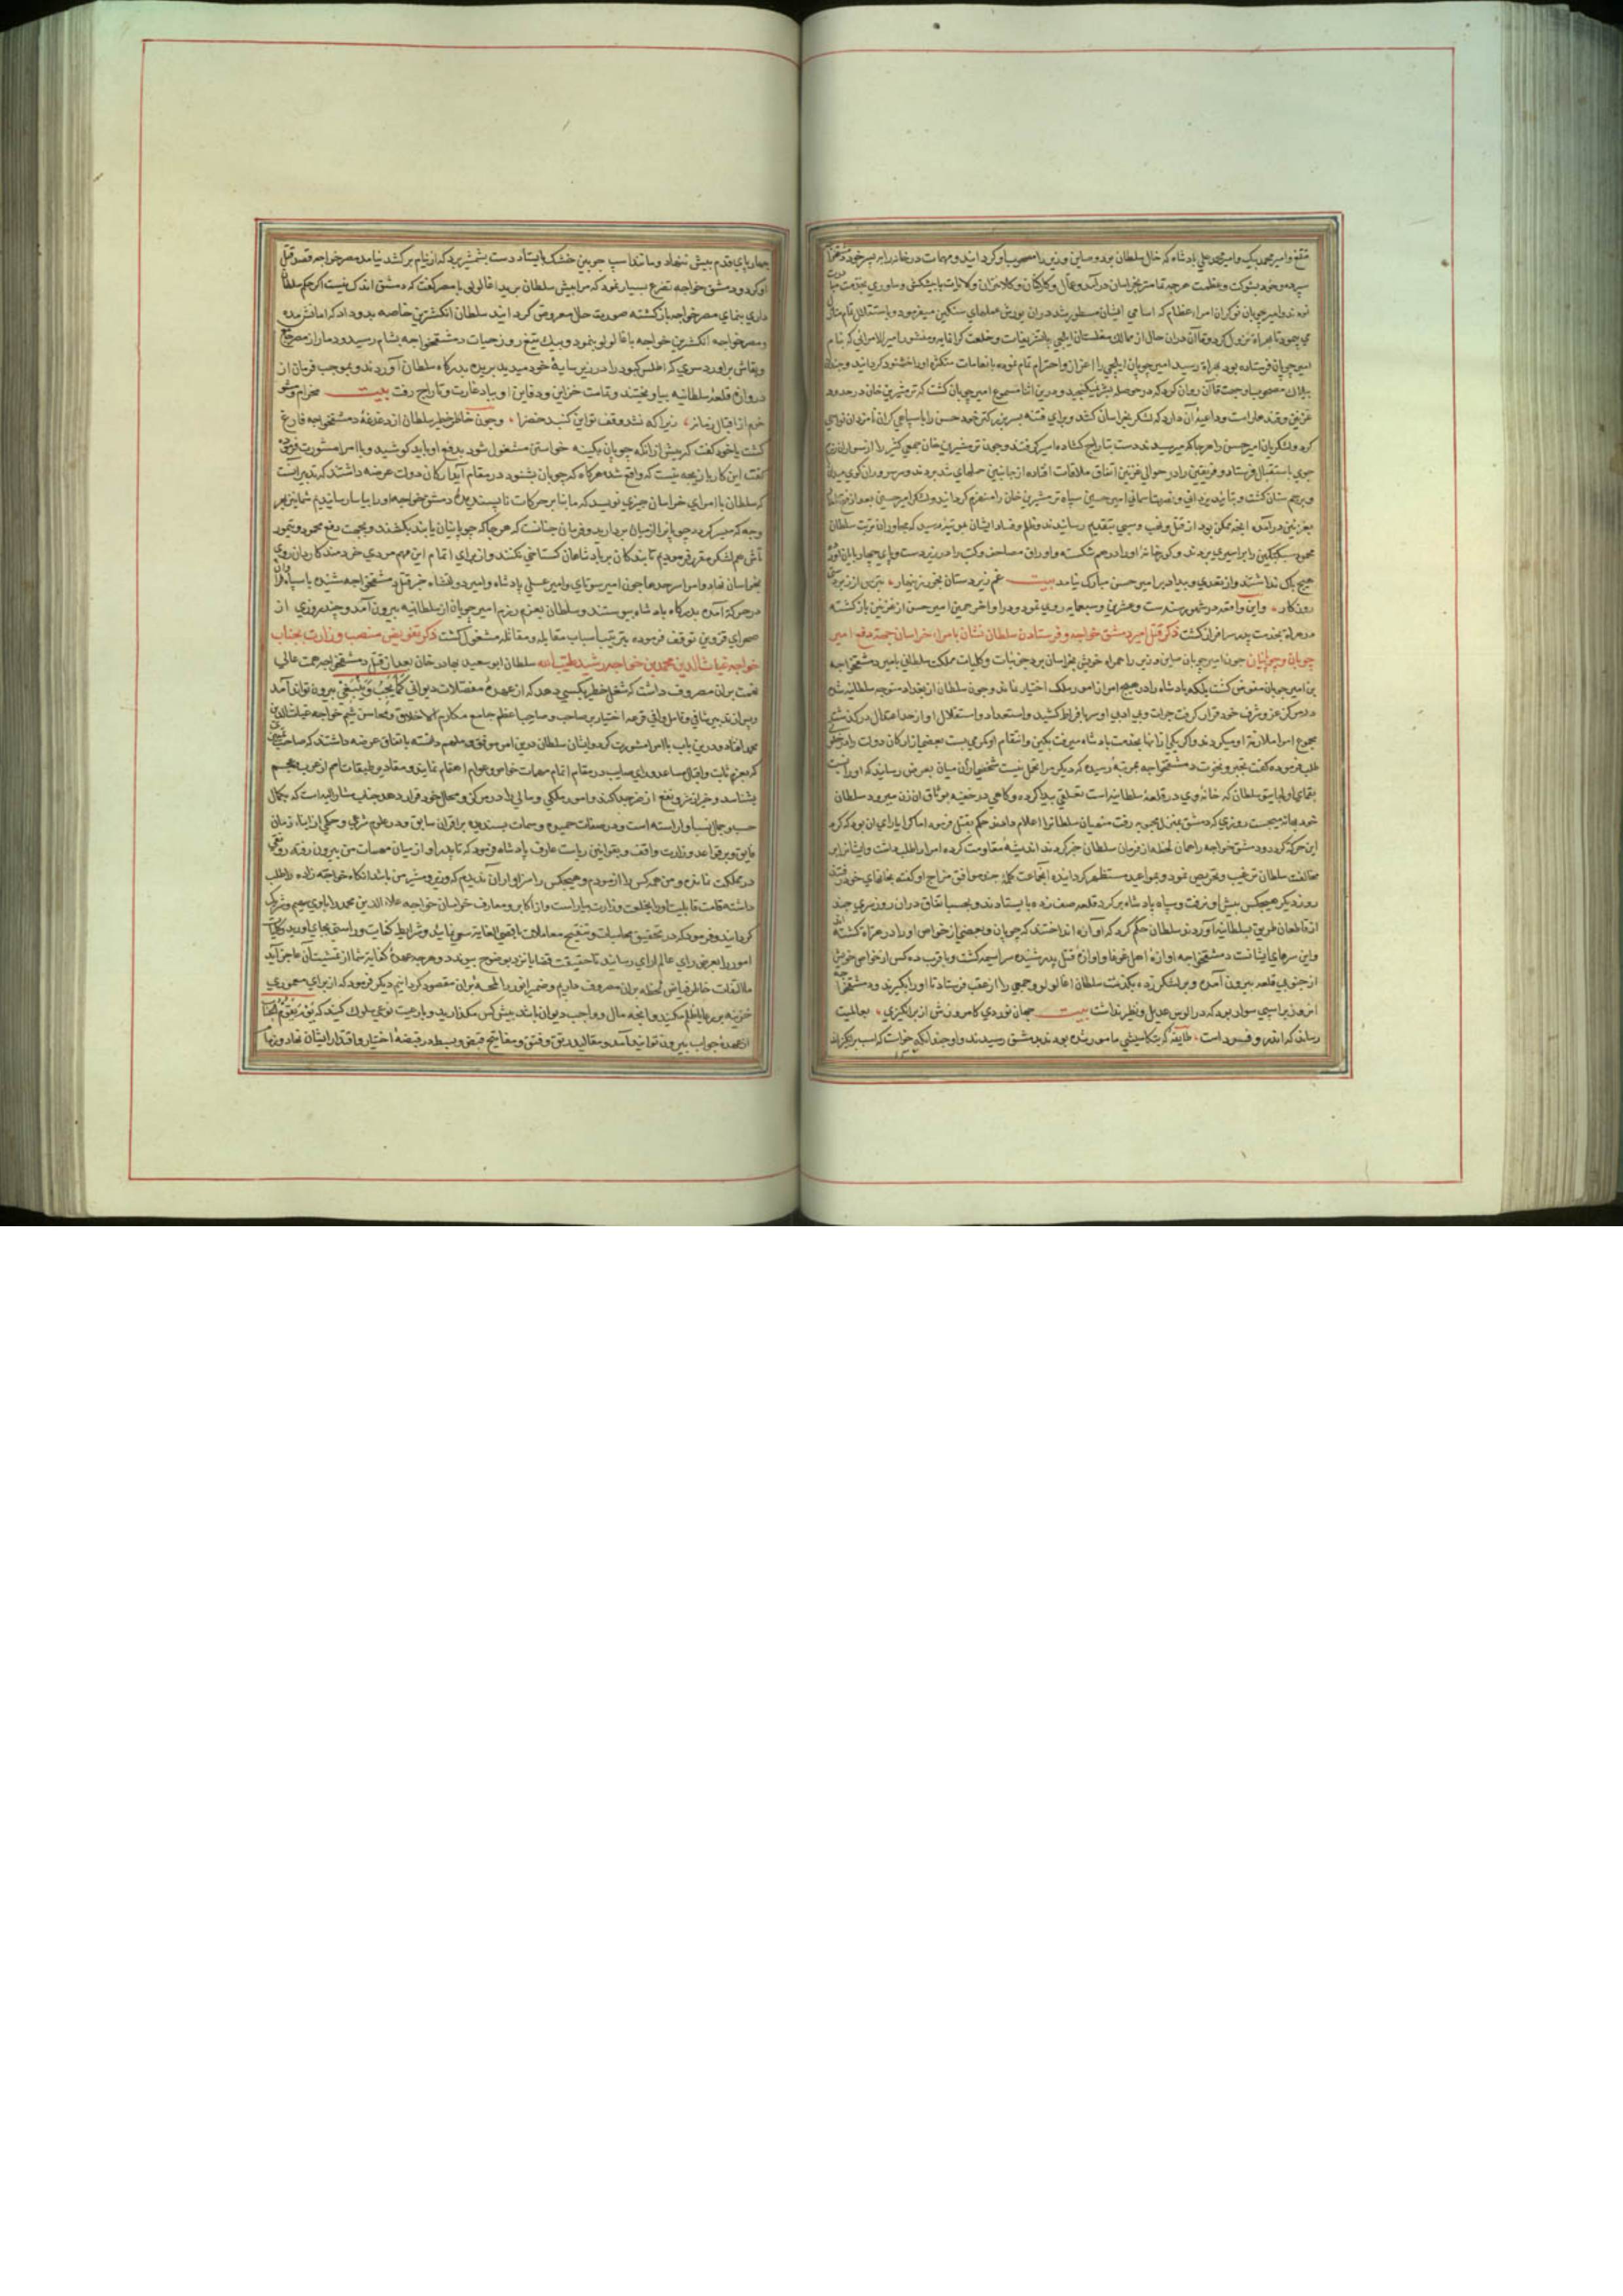 متفق وامیر محمد بیک وامیر محمد علی پادشاه که خال سلطان بود وصاین وزیر را مصحوب او کردانید ومهمات درخانه را به پسر خود دمشق
سپرده وخود بشوکت وعظمت هرچه تمامتر بخراسان درآمد وعمال وکارکنان وکلانتران وکلایات با پیشکش وساوری بخدمت
نمودند وامیر چوبان نوکران امراء عظام که اسامی ایشان مسطور شد دران یورش
می پیمود تا بهراة نزول کرد وقاآن دران حال از ممالک مغلستان ایلچی با تشریفات وخلعت کرانمایه ومنشور امیر الامرائی که بنام
امیر چوبان فرستاده بود بهراة رسید امیر چوبان ایلچی را اعزاز واحترام تمام نموده بانعامات متکثره اورا خشنود کردانید وچندان
بیلاک مصحوب او جهت قاآن روان کرد که در حوصلهٔ بشر نیکنجد ودرین اثنا مسموع امیر چوبان کشت که ترمشیرین خان در حدود
غزنین وقندهار است وداعیهٔ آن دارد که لشکر بخراسان کشد وبرای فتنه پسر بزرکتر خود حسن را با سپاهی کران نامزد آن نواحی
کرد ولشکریان امیر حسن را هرجا که میرسیدند دست بتاراج کشاده اسیر کرفتند وچون ترمشیرین خان جمعی کثیر را از سواران
جوی باستقبال فرستاد وفریقین را در حوالی غزنین اتفاق ملاقات افتاده از جانبین حملهای شدید بردند
وبتایید یزدانی سپاه ترمشیرین خان را منهزم کردانیدند ولشکر امیر حسن بعد از فتح
بغزنین درآمده آنچه ممکن بود از قتل ونهب وسبی بتقدیم رسانیدند وظلم وفساد ایشان بمرتبهٔ رسید که مجاوران تربت سلطان
محمود سبکتکین را براسیری بردند وکورخانه او را درهم شکسته واوراق مصاحف وکتب را در زیر دست وپای چهارپایان
هیچ باک نداشتند واز تعدی وبیداد بر امیر حسن مبارک نیامد بیت غم زیردستان بخور زینهار * بترس از زبردستی
روزکار * واین واقعه در شهور سنه ست وعشرین وسبعمایه روی نمود ودر اواخر همین امیر حسن از غزنین بازکشته
در هراة بخدمت پدر سرافراز کشت ذکر قتل امیر دمشق خواجه وفرستادن سلطان نشان بامراء خراسان جهة دفع امیر
چوبان وچوپانیان چون امیر چوبان صاین وزیر را همراه خویش بخراسان برد جزئیات وکلیات مملکت سلطانی بامیر دمشق خواجه
بن امیر چوبان مفوض کشت بلکه پادشاه را در هیچ امر از امور ملک اختیار نماند وچون سلطان از بغداد متوجه سلطانیه شد
ودر مرکز عز وشرف خود قرار کرفت جرأت وبی ادبی او سر بافراط کشید واستعداد واستقلال او از حد اعتدال درکذشت
مجموع امرا ملازمت او میکردند واکر یکی از آنها بخدمت پادشاه میرفت بکین وانتقام او کمر می بست بعضی از ارکان دولت را در خلوت
طلب فرموده کفت تجبر ونخوت دمشق خواجه بمرتبهٔ رسیده که دیکر مرا تحمل نیست شخصی ازان میان بعرض رسانید که او را
بقمای اولجایتو سلطان که خانهٔ وی در قلعهٔ سلطانیه است تعلقی پیدا کرده وکاهی در خفیه بوثاق آن زن میرود سلطان
خود بهانه میجست روزی که دمشق بمنزل محبوبه رفت منهیان سلطان را اعلام دادند حکم بقتل فرمود اما کرا یارای آن بود که کرد
این حرکت کردد ودمشق خواجه را همان لحظه از فرمان سلطان خبر کردند اندیشهٔ مقاومت کرده امرا را طلب داشت وایشانرا بر
مخالفت سلطان ترغیب وتحریص نمود وبمواعید مستظهر کردانیده آنجماعت کلمهٔ چند موافق مزاج او کفته بخانهای خود رفتند
روز دیکر هیچکس پیش او نرفت وسپاه پادشاه بر کرد قلعه صف زده بایستادند وبحسب اتفاق دران روز سری چند
از قاطعان طریق بسلطانیه آوردند سلطان حکم کرد که آوازه انداختند که چوبان وبعضی از خواص او را در هراة کشته
واین سرهای ایشانست دمشق خواجه آوازهٔ اهل غوغا وآوازهٔ قتل پدر شنیده سراسیمه کشت وبا قرب ده کس از خواص خویش
از جنوبی قلعه بیرون آمده وبر لشکر زده بکذشت سلطان آغا لولو وجمعی را از عقب فرستاد تا او را بکیرند ودمشق خواجه
آنروز بر اسپی سوار بود که در الوس عدیل ونظیر نداشت بیت جهان نوردی کامروزش ار برانکیزی * بعالمیت
رساند که اندرو فردست * طایفهٔ که بتکامیشی مامور شده بودند بدمشق رسیدند واو چندانکه خواست که اسب برانکیزاند
چهارپای قدم پیش ننهاد ومانند اسپ چوبین خشک بایستاد دست بشمشیر برد که از نیام برکشد نیامد مصر خواجه قصد قتل
او کرد ودمشق خواجه تضرع بسیار نمود که مرا پیش سلطان برید آغا لولو با مصر کفت که دمشق اندک نیست اکر حکم سلطان
داری بنمای مصر خواجه بازکشته صورت حال معروض کردانید سلطان انکشترین خاصه بدو داد که امانش مده
ومصر خواجه انکشترین خواجه باغا لولو بنمود وبیک تیغ روز حیات دمشق خواجه بشام رسید ودمار از
وبقاش برآورد سری که اطلس کبود را در زیر سایهٔ خود میدید بریده بدرکاه سلطان آوردند وبموجب فرمان از
دروازهٔ قلعهٔ سلطانیه بیاویختند وتمامت خزاین ودفاین او بباد غارت وتاراج رفت بیت مخرام
خرم از اقبال زمانه * زیرا که نشد وقف تو این کنبد خضرا * وچون خاطر خطیر سلطان از دغدغهٔ دمشق خواجه فارغ
کشت با خود کفت که پیش ازانکه چوبان بکینه خواستن مشغول شود بدفع او باید کوشید وبا امرا مشورت
کفت این کار بازیچه نیست که واقع شد هرکاه که چوبان بشنود در مقام آید ارکان دولت عرضه داشتند که تدبیر آنست
که سلطان بامرای خراسان چیزی نویسد که ما بنابر حرکات ناپسندیده دمشق خواجه او را بیاسا رسانیدیم شما نیز بهر
وجه که میسر کردد چوبانرا از میان بردارید وفرمان چنانست که هرجا که چوپانیان یابند بکشند وبجهت دفع محمود وتیمور
تاش هم لشکر مقرر فرمودیم تا بندکان بر پادشاهان کستاخی نکنند واز برای اتمام این مهم مردی خردمند کاردان روی
بخراسان نهاد وامراء سرحدها چون امیر سونتای وامیر علی پادشاه وامیر دولتشاه خبر قتل دمشق خواجه شنیده با سپاه
در حرکت آمده بدرکاه پادشاه پیوستند وسلطان بعزم رزم امیر چوبان از سلطانیه بیرون آمد وچند روزی در
صحرای قزوین توقف فرموده بترتیب اسباب مقابله ومقاتله مشغول کشت ذکر تفویض منصب وزارت بجناب
خواجه غیاث الدین محمد بن خواجه رشید طبیب سلطان ابو سعید بهادر خان بعد از قتل دمشق خواجه همت عالی
نهمت بران مصروف داشت که شغل خطیر بکسی دهد که از عهدهٔ معضلات دیوانی کما یجب وینبغی بیرون تواند آمد
وپس از تدبیر شافی وتامل وافی قرعه اختیار بر صاحب وصاحب اعظم جامع مکارم اخلاق ومحاسن شیم خواجه غیاث الدین
محمد افتاد ودرین باب با امرا مشورت کرد وایشان سلطان درین امر موفق وملهم دانسته باتفاق عرضه داشتند که صاحب
که بعزم ثابت واقبال مساعد ورای صایب در مقام اتمام مهمات خواص وعوام اهتمام نماید ومقادیر طبقات امم از عرب وعجم
بشناسد وخیر از شر ونفع از ضر جدا کند وامور ملکی ومالی را در مرکز ومحل خود قرار دهد جناب مشار الیه است که بکمال
حسب وجمال نسب آراسته است ودر صفات حمیده وسمات پسندیده بر اقران سابق ودر علوم شرعی وحکمی از ابناء زمان
فایق وبر قواعد وزارت واقف وبقوانین ریاست عارف پادشاه فرمود که تا پدر او از میان مهمات من بیرون رفته رونقی
در مملکت نمانده ومن همه کس را آزمودم وهیچکس را سزاوار آن ندیدم که وزیر ومشیر من باشد آنکاه خواجه زاده را طلب
داشته قامت قابلیت او را بخلعت وزارت بیاراست واز اکابر ومعارف خراسان خواجه علاء الدین محمد را با وی سهیم وشریک
کردانید وفرمود که در تحقیق محاسبات وتنقیح معاملات باقصی الغایة سعی نمایند وشرایط کفایت وراستی بجای آورید وکلیات
امور را بعرض رای عالم آرای رسانید تا حقیقت قضایا نزد ما بوضوح پیوندد وهرچه عهدهٔ کفایة شما از تمشیت آن عاجز آید
ما التفات خاطر فیاض لحظه بران مصروف داریم وضمیر انور را لمحهٔ بران مقصود کردانیم دیکر فرمود که از برای معموری
خزینه بر رعایا ظلم مکنید وآنچه مال وواجب دیوان باشد پیش کس مکذارید وبا رعیت نوعی سلوک کنید که
از عهدهٔ جواب بیرون توانید آمد ومقالید رتق وفتق ومفاتیح قبض وبسط در قبضهٔ اختیار واقتدار ایشان نهاد